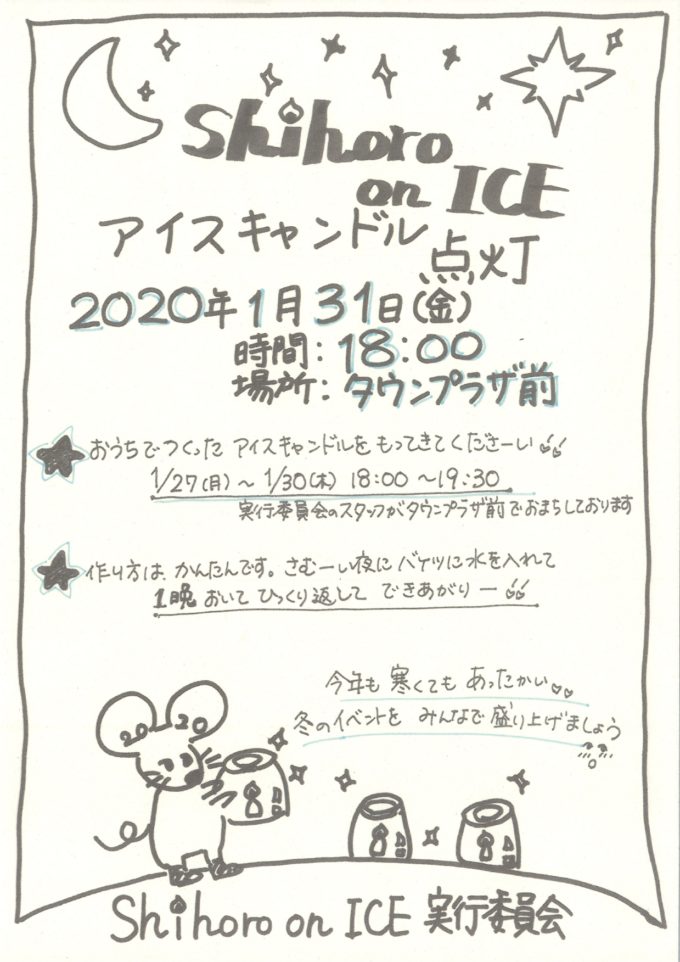 Shihoro
on ICE
アイスキャンドル
点灯
2020年1月31日(金)
時間: 18:00
場所: タウンプラザ前
おうちでつくった アイスキャンドルを もってきてくださーい
1/27(月)~1/30(木) 18:00~19:30
実行委員会のスタッフがタウンプラザ前でおまちしております
作り方は、かんたんです。さむーい夜に バケツに水を入れて
1晩 おいて ひっくり返して できあがりー
今年も 寒くても あったかい
冬のイベントを みんなで盛り上げましょう
20 20
Shihoro on ICE 実行委員会